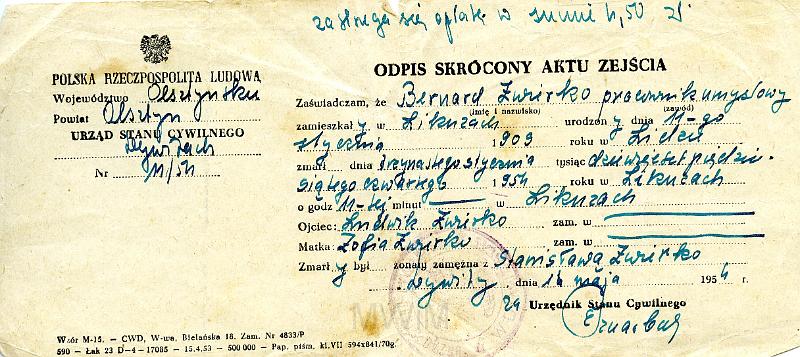 zasięga się opłatę w sumie 4,50 zł
POLSKA RZECZPOSPOLITA LUDOWA
Województwo Olsztyńskie
Powiat Olsztyn
URZĄD STANU CYWILNEGO
Dywitach
Nr 11/54
ODPIS SKRÓCONY AKTU ZEJŚCIA
Zaświadczam, że Bernard Żwirko pracownik umysłowy
(imię i nazwisko) (zawód)
zamieszkały w Likuzach urodzony dnia 11-go
stycznia 1909 roku w Lidzie
zmarł dnia trzynastego stycznia tysiąc dziewięćset pięćdzie-
siątego czwartego 1954 roku w Likuzach
o godz 11-tej minut — w Likuzach
Ojciec: Ludwik Żwirko zam. w —
Matka: Zofia Żwirko zam. w —
Zmarły był żonaty zamężna z Stanisławą Żwirko
Dywity, dnia 14 maja 1954
za Urzędnik Stanu Cywilnego
MWM
Wzór M-15. — CWD, W-wa, Bielańska 18. Zam. Nr 4833/P
590 — Łak 23 D-4-17085 — 15.4.53 — 500 000 — Pap. piśm. kl. VII 594x841/70g.